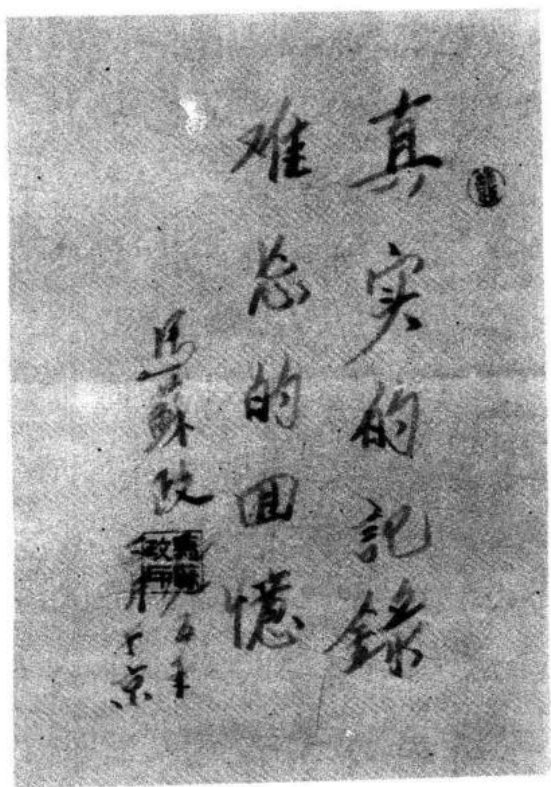 真实的記錄
难忘的回憶
馬蘇政
于京